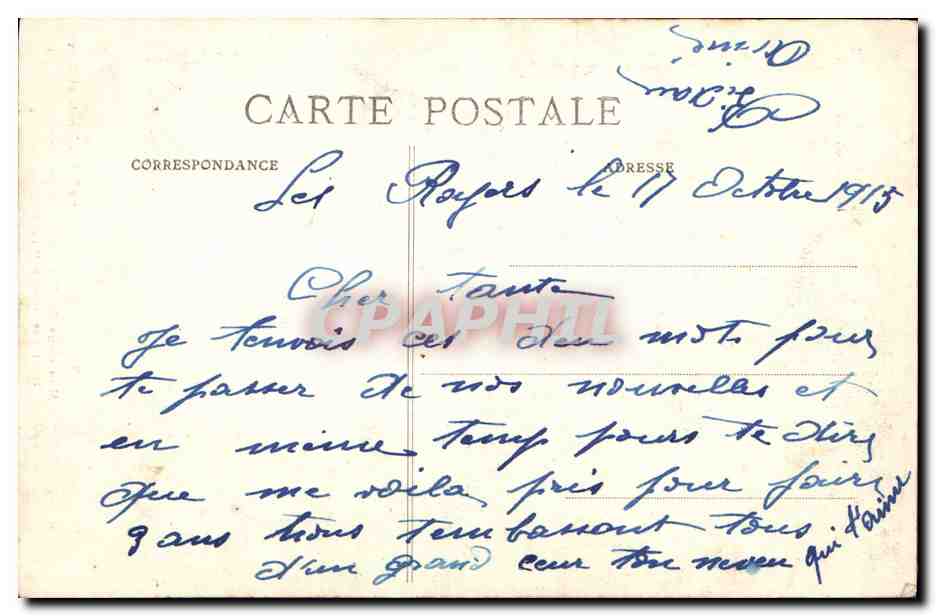 CARTE POSTALE
CORRESPONDANCE
ADRESSE
Les Rogers le 17 Octobre 1915
Cher tante
CPAPHIL
Je tenvois ces deu mots pour
te passer de nos nouvelles et
en meme temp pours te dire
que me voila pris pour faire
3 ans nous tembassont tous
d'un grand cœur ton neveu
qui t'aime
Aimé